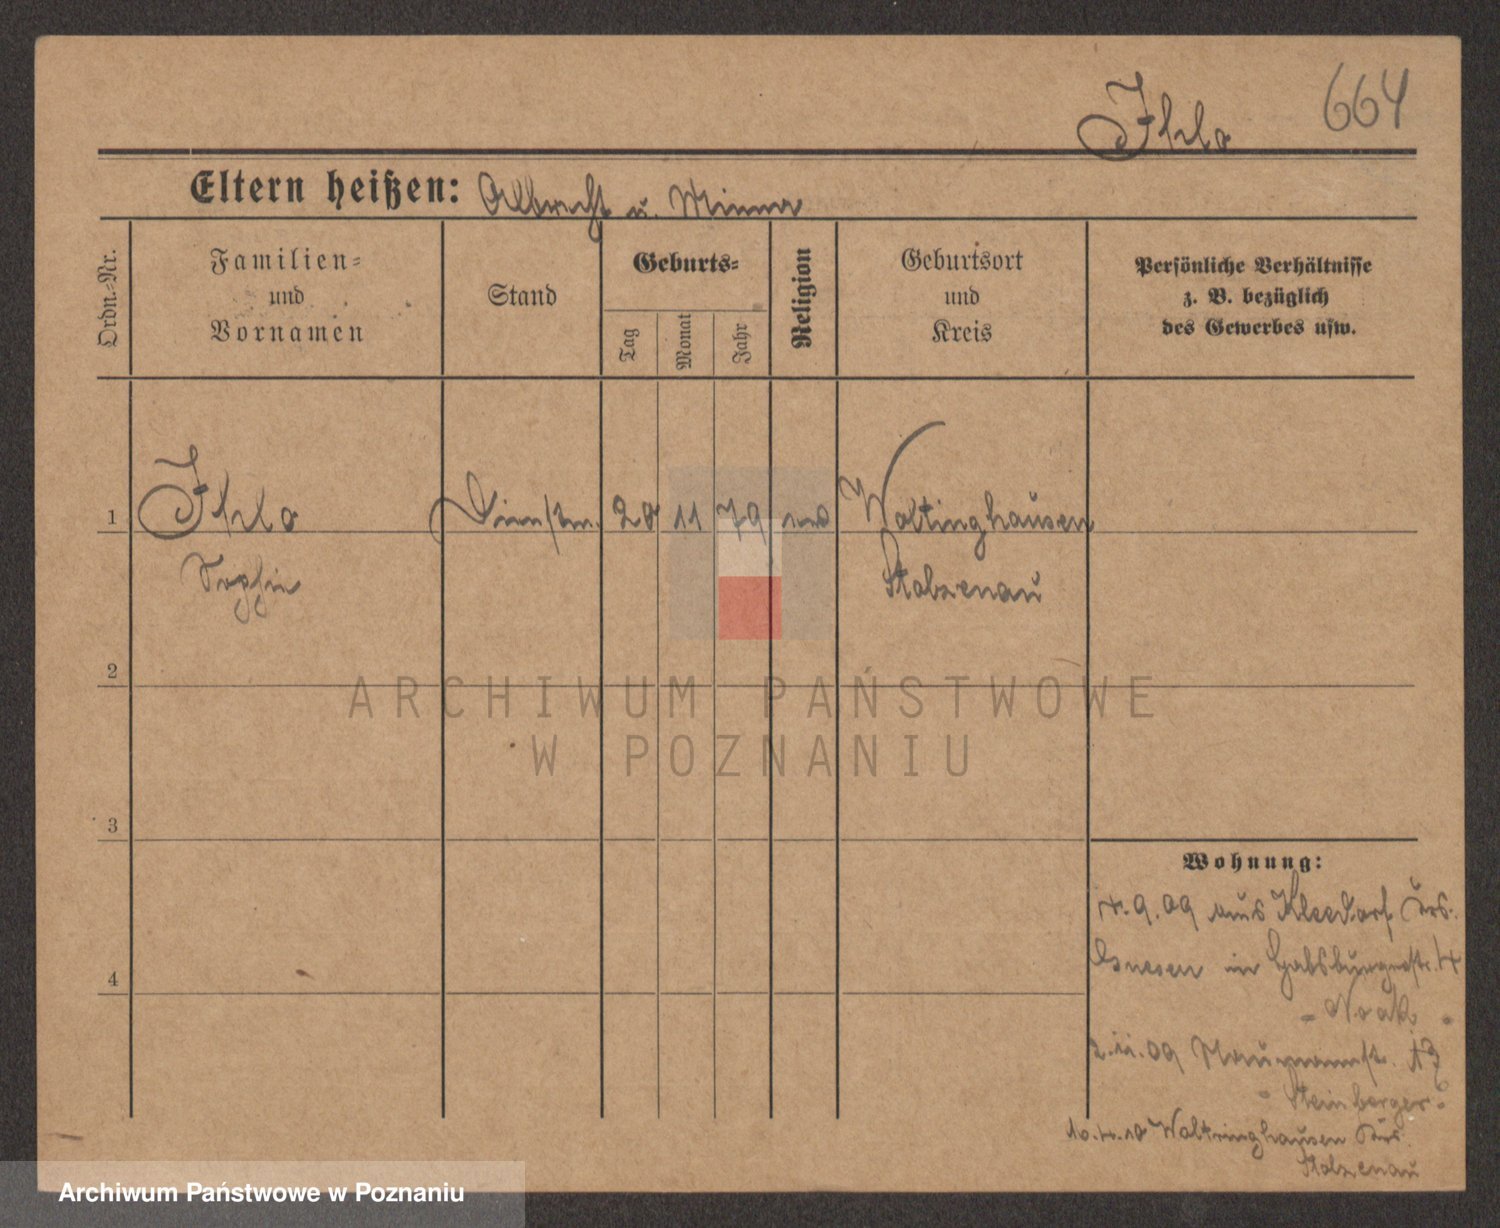 664
Ihlo
Eltern heißen: Albrecht u. Minna
Ordn.-Nr.
Familien-
und
Vornamen
Stand
Geburts-
Tag
Monat
Jahr
Religion
Geburtsort
und
Kreis
Persönliche Verhältnisse
z. B. bezüglich
des Gewerbes usw.
1 Ihlo Dienstm. 28 11 79 Woltinghausen
Sophie Stolzenau
2
3
4
Wohnung:
4.9.09 aus Kleedorf Krs.
Gnesen in Habsburgerstr. 4
- Noak -
2.11.09 Naumannstr. 17
- Steinberger -
10.4.10 Woltringhausen Krs.
Stolzenau
ARCHIWUM PAŃSTWOWE
W POZNANIU
Archiwum Państwowe w Poznaniu